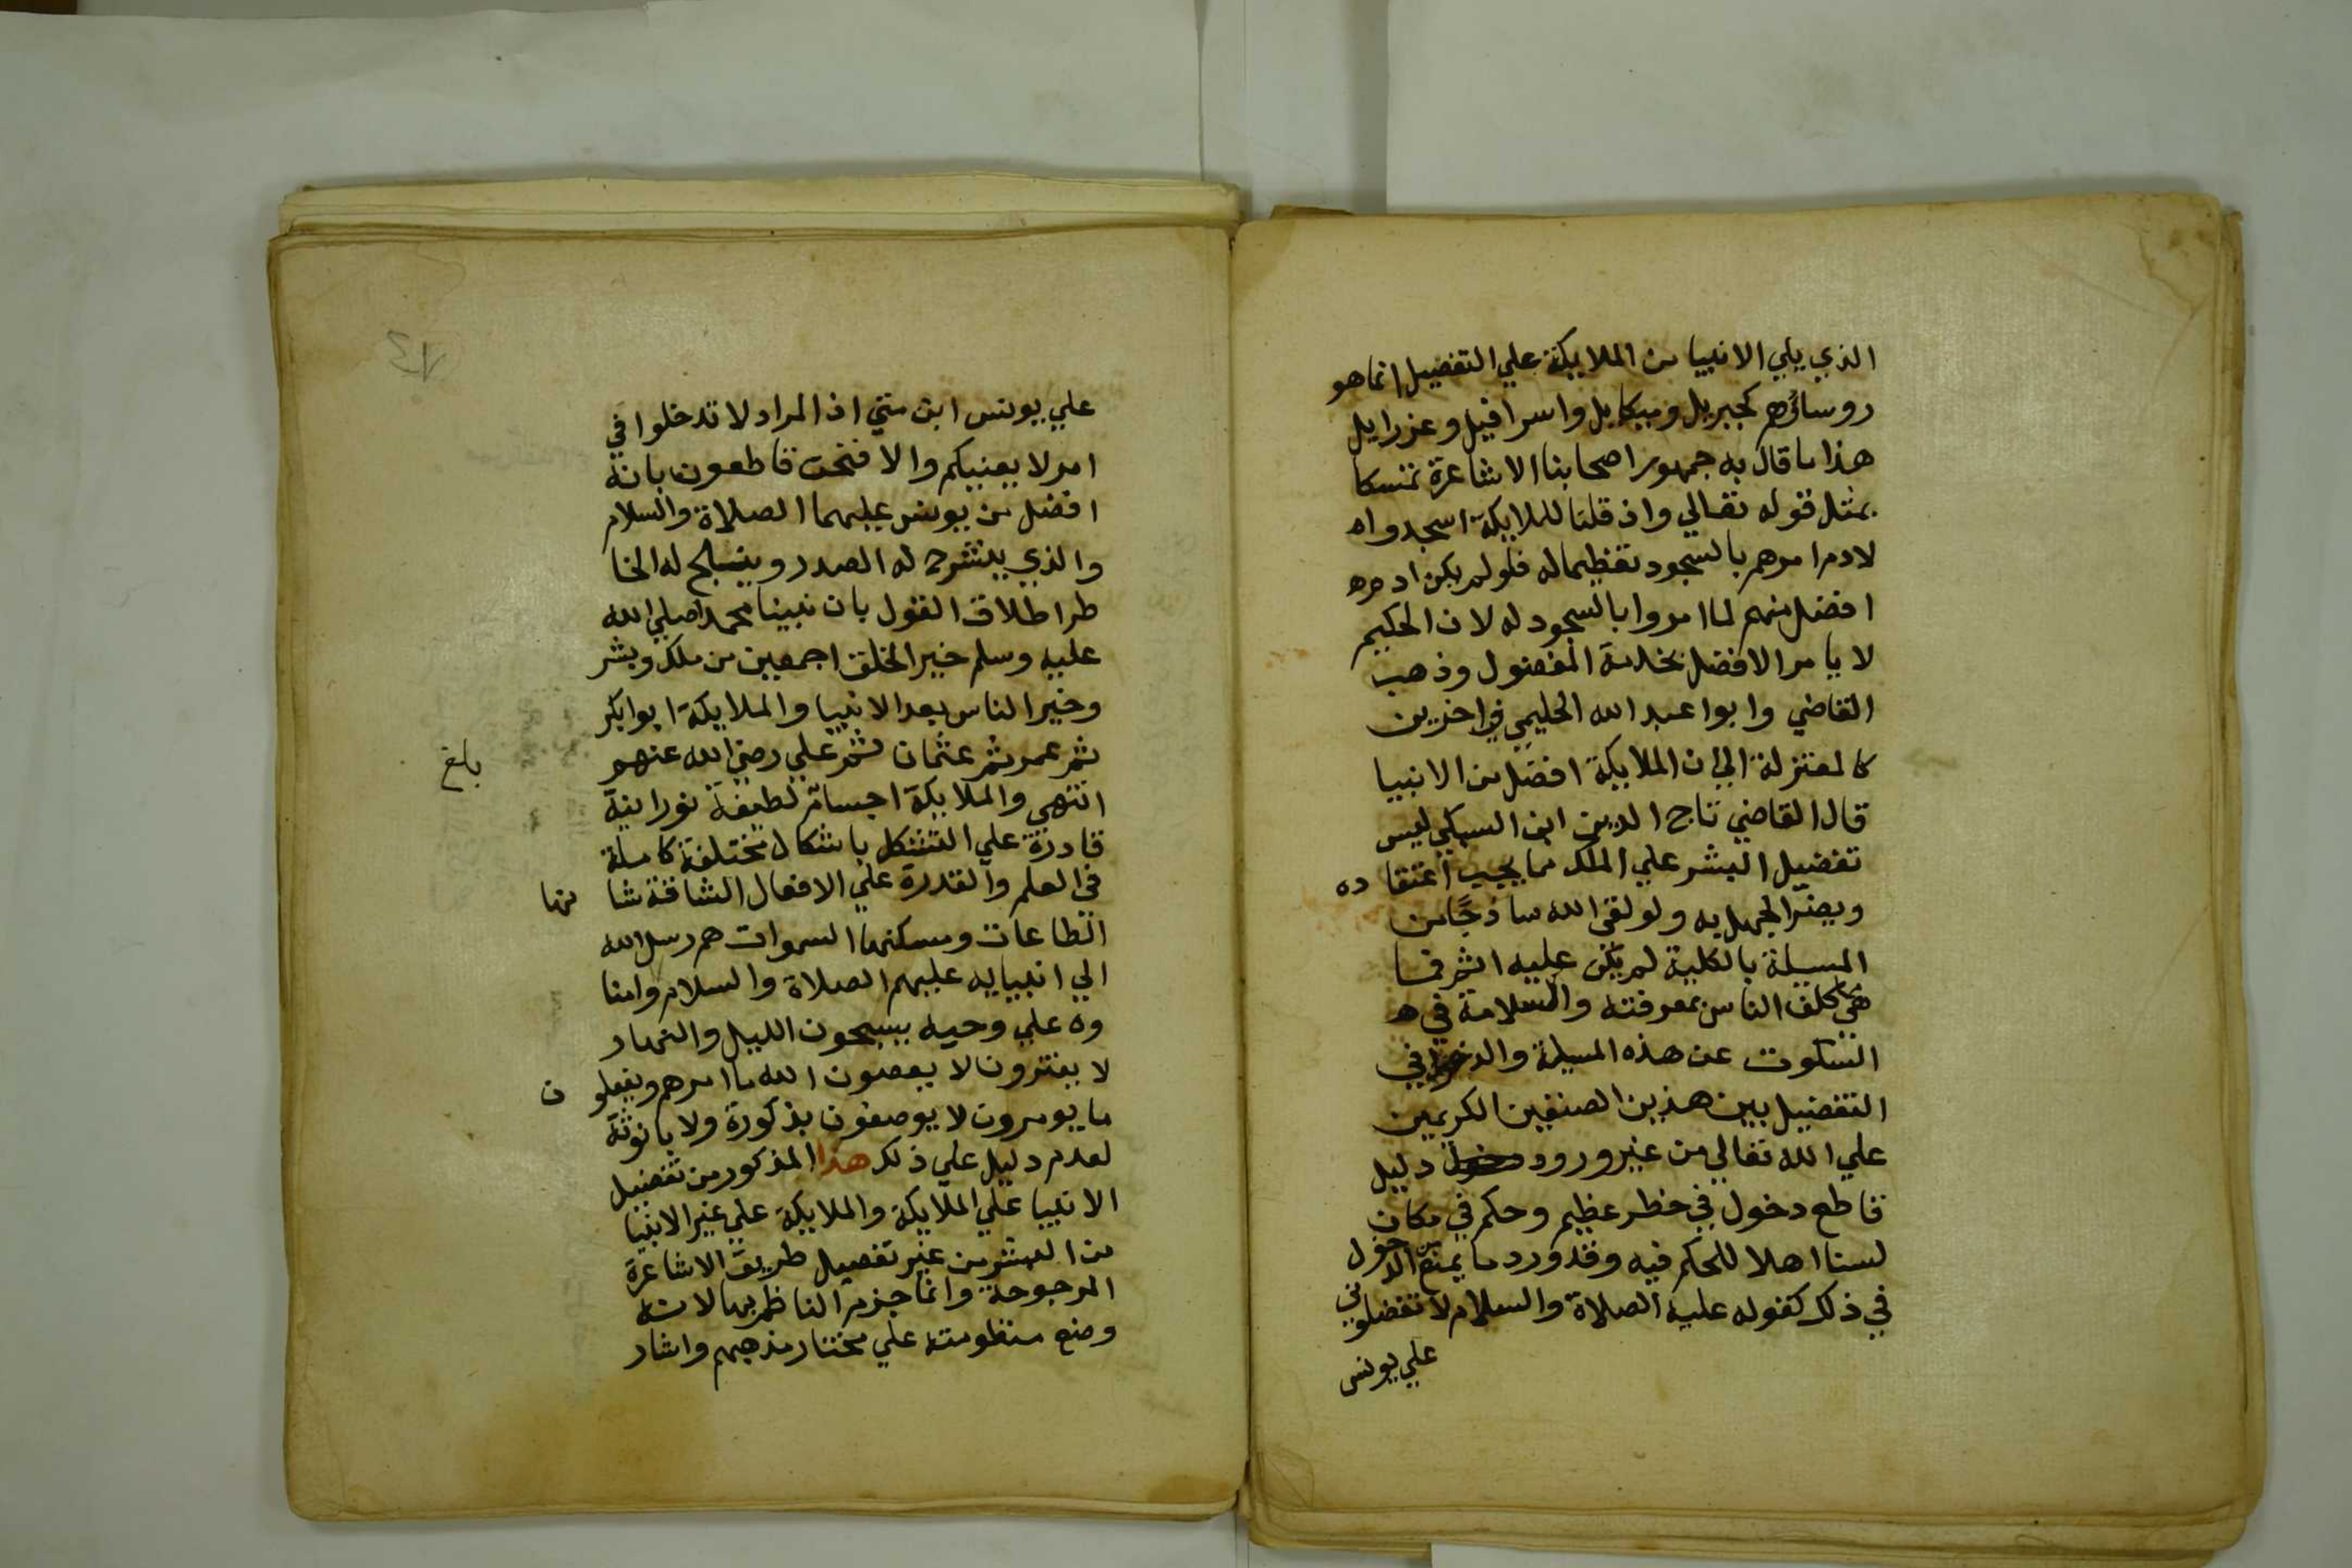 الذي يلي الانبيا من الملايكة علي التفضيل انما هو
روساؤهم كجبريل وميكايل واسرافيل وعزرايل
هذا ما قال به جمهور اصحابنا الاشاعرة تمسكا
بمثل قوله تعالي واذ قلنا للملايكة اسجدوا
لادم امرهم بالسجود تعظيما له فلو لم يكن ادم
افضل منهم لما امروا بالسجود له لان الحكيم
لا يامر الافضل بخدمة المفضول وذهب
القاضي وابوا عبد الله الحليمي في اخرين
كالمعتزلة الي ان الملايكة افضل من الانبيا
قال القاضي تاج الدين ابن السبكي ليس
تفضيل البشر علي الملك مما يجب اعتقاده
ويضر الجهل به ولو لقي الله ساذجا من
المسيلة بالكلية لم يكن عليه اثم فما
هي مما كلف الناس بمعرفته والسلامة في
السكوت عن هذه المسيلة والدخول في
التفضيل بين هذين الصنفين الكريمين
علي الله تعالي من غير ورود دليل
قاطع دخول في خطر عظيم وحكم في مكان
لسنا اهلا للحكم فيه وقد ورد ما يمنع من الدخول
في ذلك كقوله عليه الصلاة والسلام لا تفضلوني
علي يونس
13
علي يونس ابن متي اذ المراد لا تدخلوا في
امر لا يعنيكم والا فنحن قاطعون بانه
افضل من يونس عليهما الصلاة والسلام
والذي ينشرح له الصدر ويثلج له الخا
طر اطلاق القول بان نبينا محمدا صلي الله
عليه وسلم خير الخلق اجمعين من ملك وبشر
وخير الناس بعد الانبيا والملايكة ابوا بكر
ثم عمر ثم عثمان ثم علي رضي الله عنهم
بلغ
انتهي والملايكة اجسام لطيفة نورانية
قادرة علي التشكل باشكال مختلفة كاملة
في العلم والقدرة علي الافعال الشاقة شانها
الطاعات ومسكنها السموات هم رسل الله
الي انبيايه عليهم الصلاة والسلام وامنا
وه علي وحيه يسبحون الليل والنهار
لا يفترون لا يعصون الله ما امرهم ويفعلون
ما يومرون لا يوصفون بذكورة ولا بانوثة
لعدم دليل علي ذلك هذا المذكور من تفضيل
الانبيا علي الملايكة والملايكة علي غير الانبيا
من البشر من غير تفصيل طريق الاشاعرة
المرجوحة وانما جزم الناظم بها لانه
وضع منظومته علي مختار مذهبهم واشار